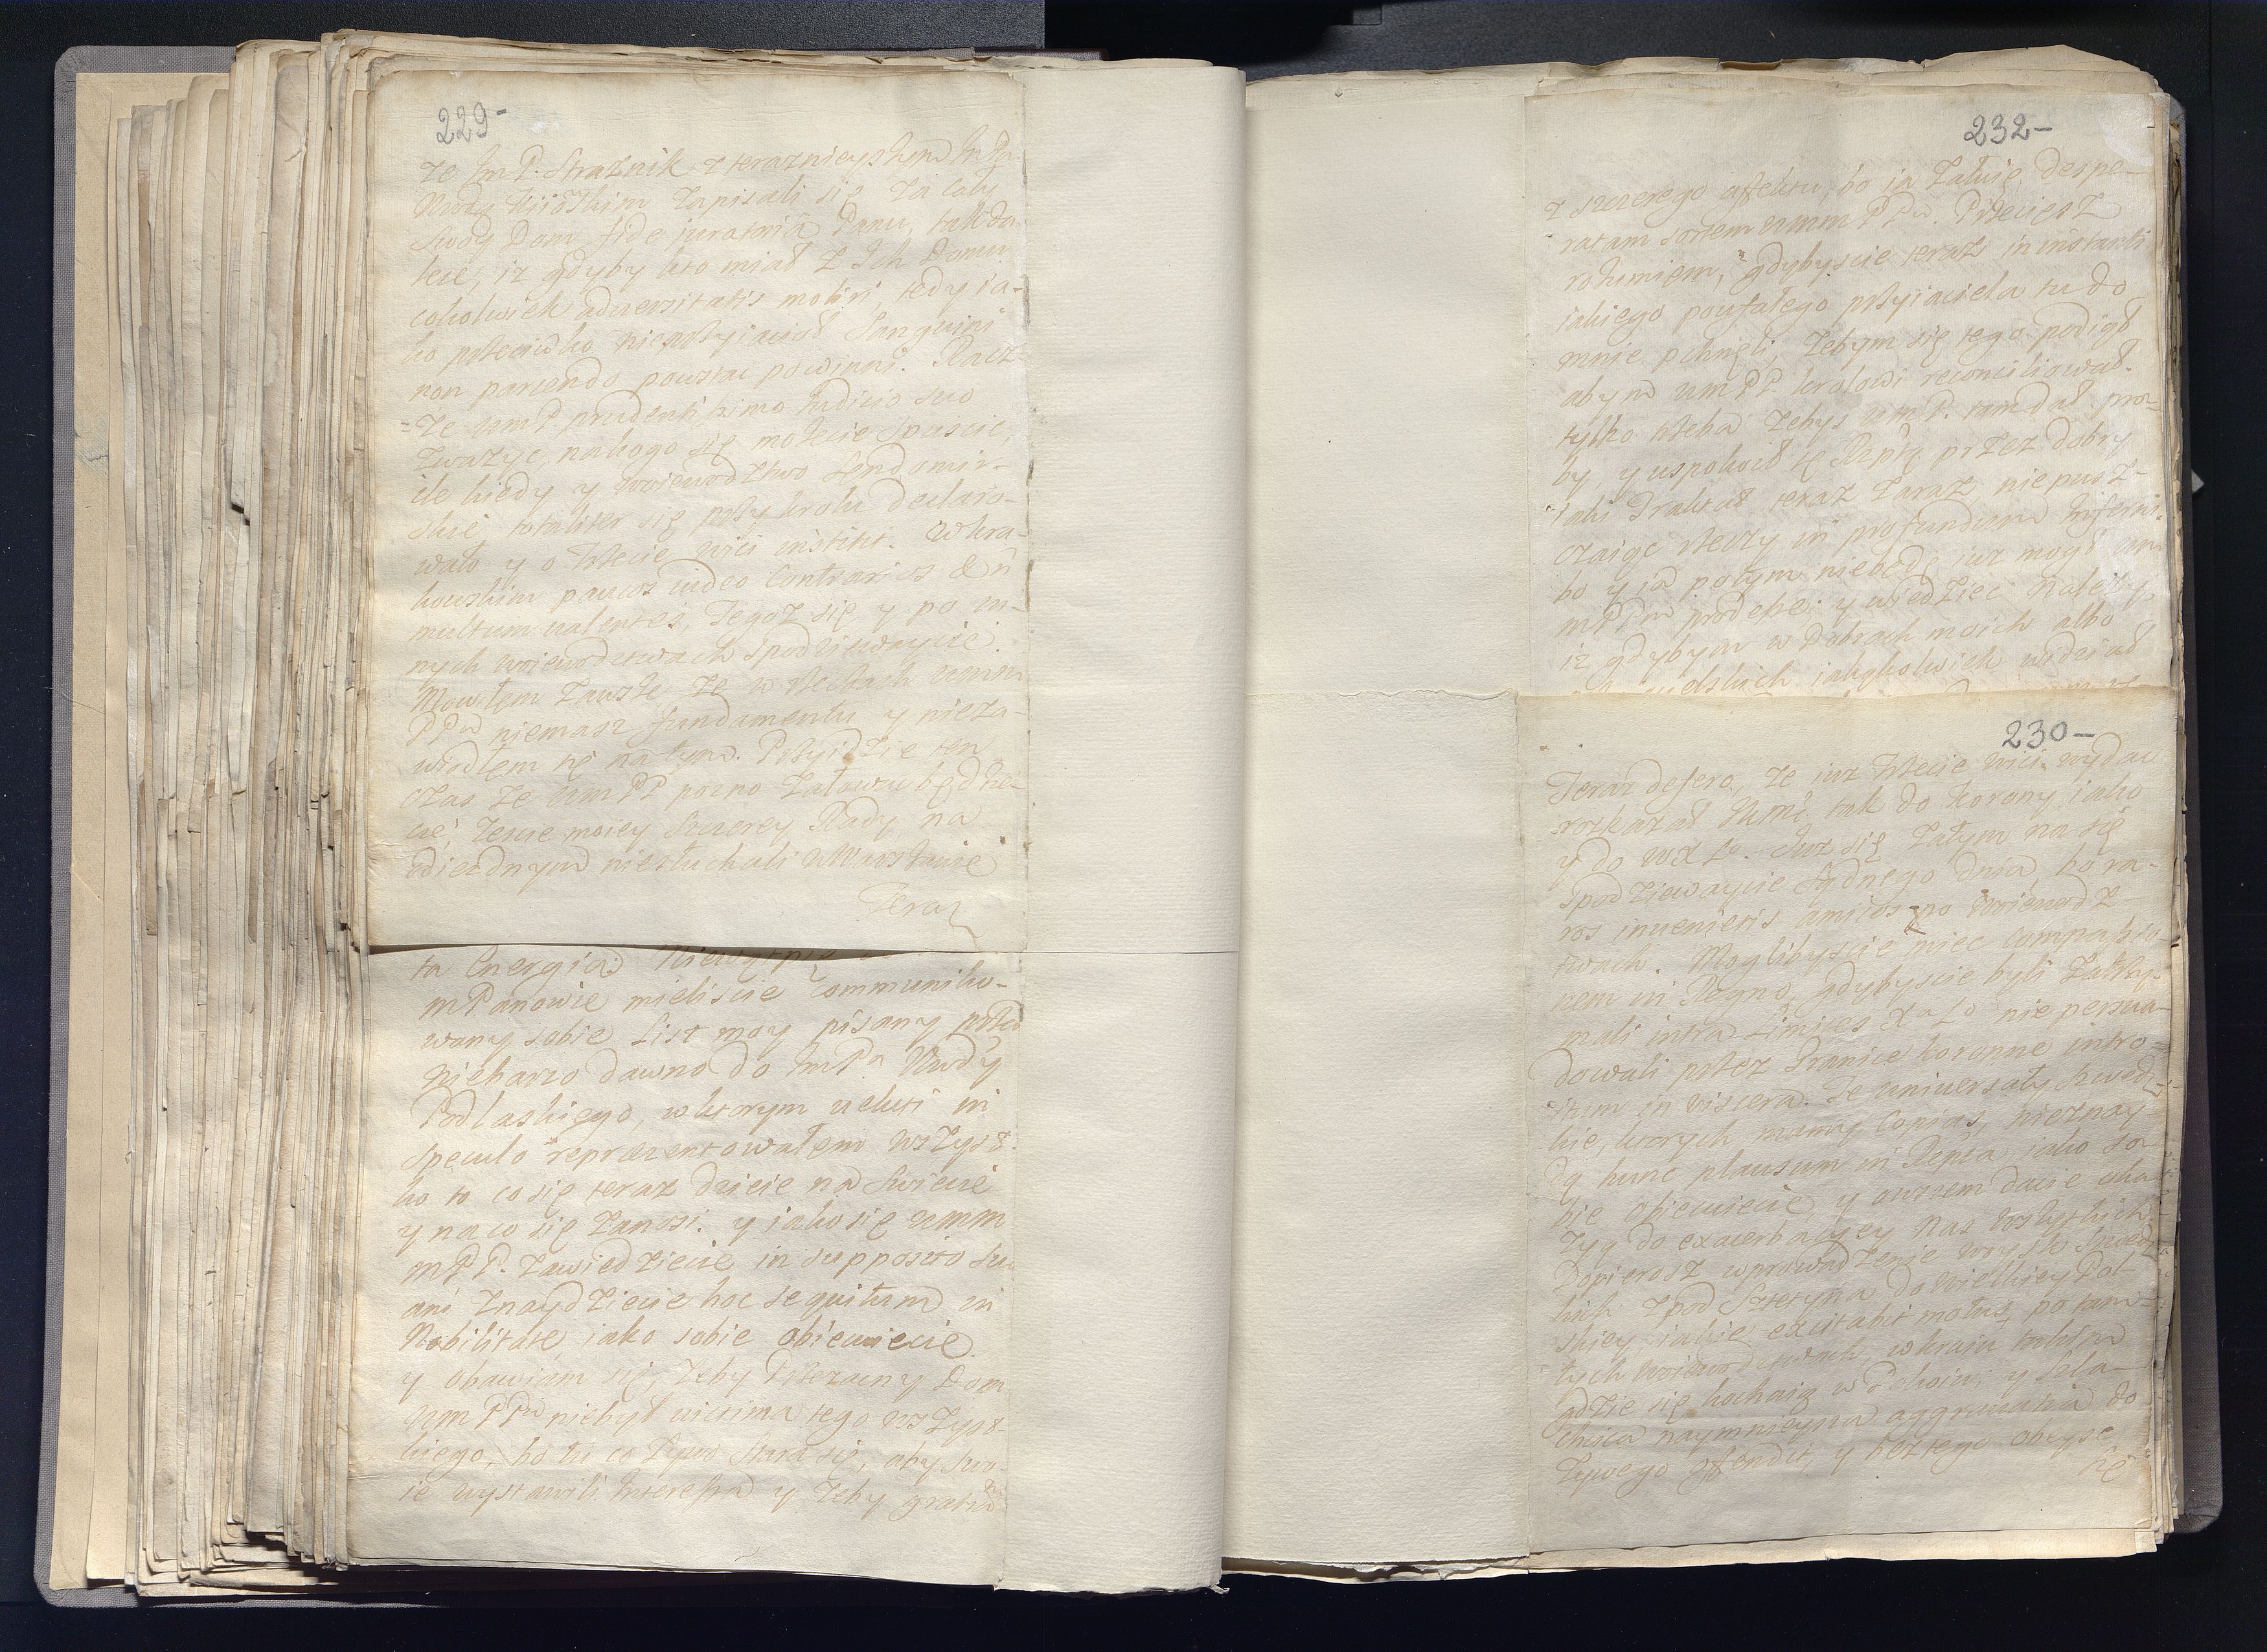 229-
ze Im P. Strażnik z teraznieyszym Im Pa
Wwdą Kiiowskim zapisali się za cały
swoy Dom fide iuratoria Panu, tak da-
lece, iz gdyby kto miał z Ich Domu
cokolwiek adversitatis moliri, tedy ia-
ko przeciwko nieprzyiacioł Sanguini
non parcendo powstac powinni. Racz-
-ze WmP prudentissimo Iudicio suo
zwazyc, na kogo się mozecie spuscic,
ile kiedy y woiewodztwo Sendomir-
skie totaliter się przy krolu declaro-
wało y o trzecie wici institit. W kra-
kowskim paucos video Contrarios &
multum valentes, Tegoz się y po in-
nych woiewodztwach spodziewaycie.
Mowiłem zawsze ze w rzeczach
PPw niemasz fundamentu y nieza-
wiodłem się na tym. Przyidzie ten
czas ze WmPP pozno załowac będzie-
cie, zescie moiey szczerey Rady na
wiezdnym niesłuchali w Warszawie
Teraz
ta Energia:
mPanowie mieliscie communiko-
wany sobie List moy pisany przed
niebarzo dawno do ImPa Wwdy
Podlaskiego, w ktorym veluti in
speculo repraezentowałem wszyst-
ko to co się teraz dzieie na Swiecie
y na co się zanosi: y iako się WMM
mPP. zawiedziecie in supposito su
ani znaydziecie hoc sequitum in
Nobilitate, iako sobie obiecuiecie
y obawiam się, zeby Przezacny Dom
WmPPw niebył victima tego wszyst-
kiego, bo tu co zywo stara się, aby swo-
ie wystawili Interessa y zeby gratiam
232-
z szczerego affektu, bo ia załuię despe-
ratam sortem WMM PPw. Przeciesz
rozumiem, gdybyscie teraz in instanti
iakiego poufałego przyiaciela tu do
mnie pchnęli, zebym się tego podiął
abym WmPP krolowi reconciliował.
tylko trzeba zebys WmP. tam dał pro-
by, y uspokoił tę Rzptę przez dobry
iaki Traktat teraz zaraz, niepusz-
czaiąc rzeczy in profundum Inferni.
bo y ia potym niebędę iuz mogł
mPPm prodesse. y wiedziec nalezy,
iz gdybym w Dobrach moich albo
iakychkolwiek widział
230-
Teraz defero, ze iuz trzecie wici wydac
rozkazał KrMc tak do Korony iako
y do WXLo. Iuz się zatym na się
spodziewaycie sądnego dnia, bo ra-
ros invenietis amicos po Woiewodz-
twach. Moglibyscie miec Compassio-
nem in Regno, gdybyscie byli zatrzy-
mali intra Limites XaLo nie persua-
dowali przez Granice koronne intro-
itum in viscera. Te uniwersały szwedz-
kie, ktorych mamy Copias, nieznay-
dą hunc plausum in Rzpta, iako so-
bie obiecuiecie, y owszem dacie oka
zyą do exacerbacyey nas wszystkich.
Dopierosz wprowadzenie woysk szwedz
kich z pod Sztetyna do wielkiey Pol-
skiey, iakie excitabit motus, po tam-
tych woiewodztwach, w kraiu ludzkim
gdzie się kochaią w Pokoiu, y szla-
chcica naymnieysza aggravatia do
zywego offendit, y beztego obeyse
się